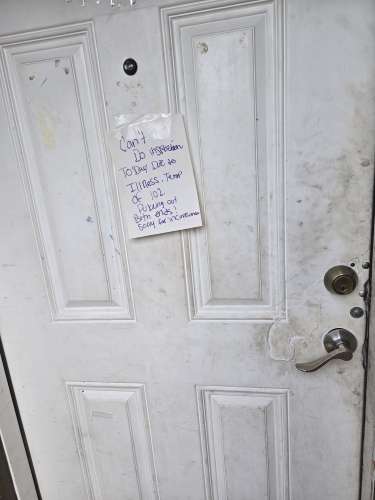 Can't
Do inspection
Today Due to
Illness. Temp
Of 102
Puking out
Both ends!
Sorry for inconvenience